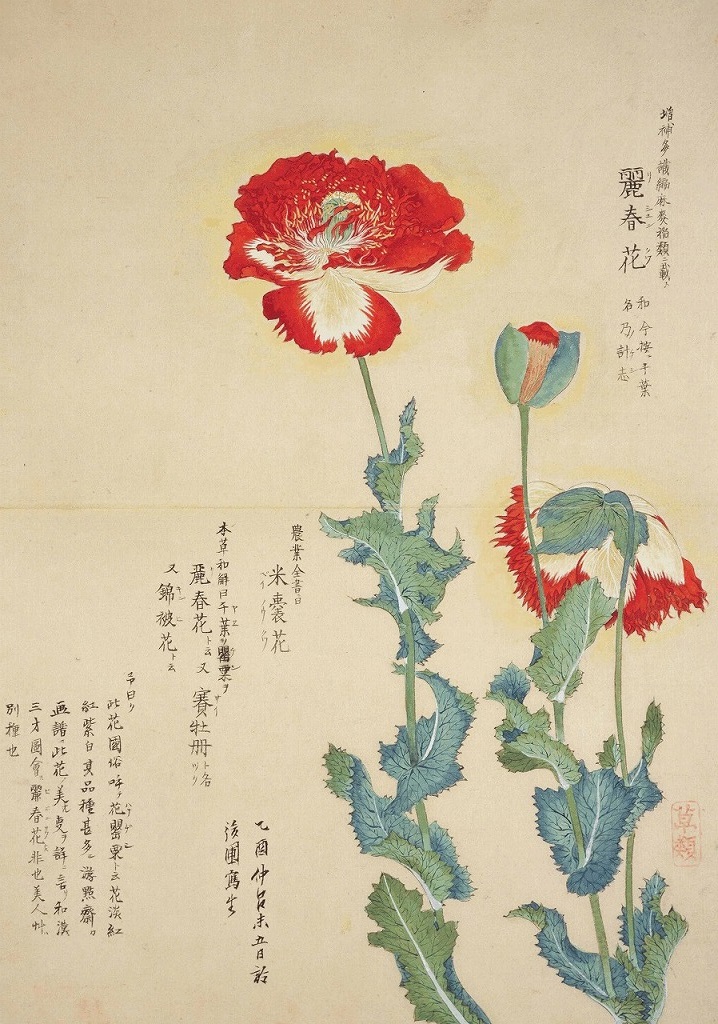 増補多識編麻麥稲類ニ載ス
麗春花
リ シュン クワ
和 今按ニ千葉
名 乃計志
ノ ケ シ
農業全書曰
米嚢花
ベイ ノウ クワ
本草和解曰千葉ノ罌粟ヲ
麗春花ト云又 賽牡丹ト名
又錦被花ト云
予曰ク
此花國俗呼テ花罌粟ト云花淡紅
紅紫白其品種甚多シ
画譜ニ此花ノ美
三才圖會
麗春花非也美人艸
別種也
乙酉仲呂末五日
後園寫生
草類